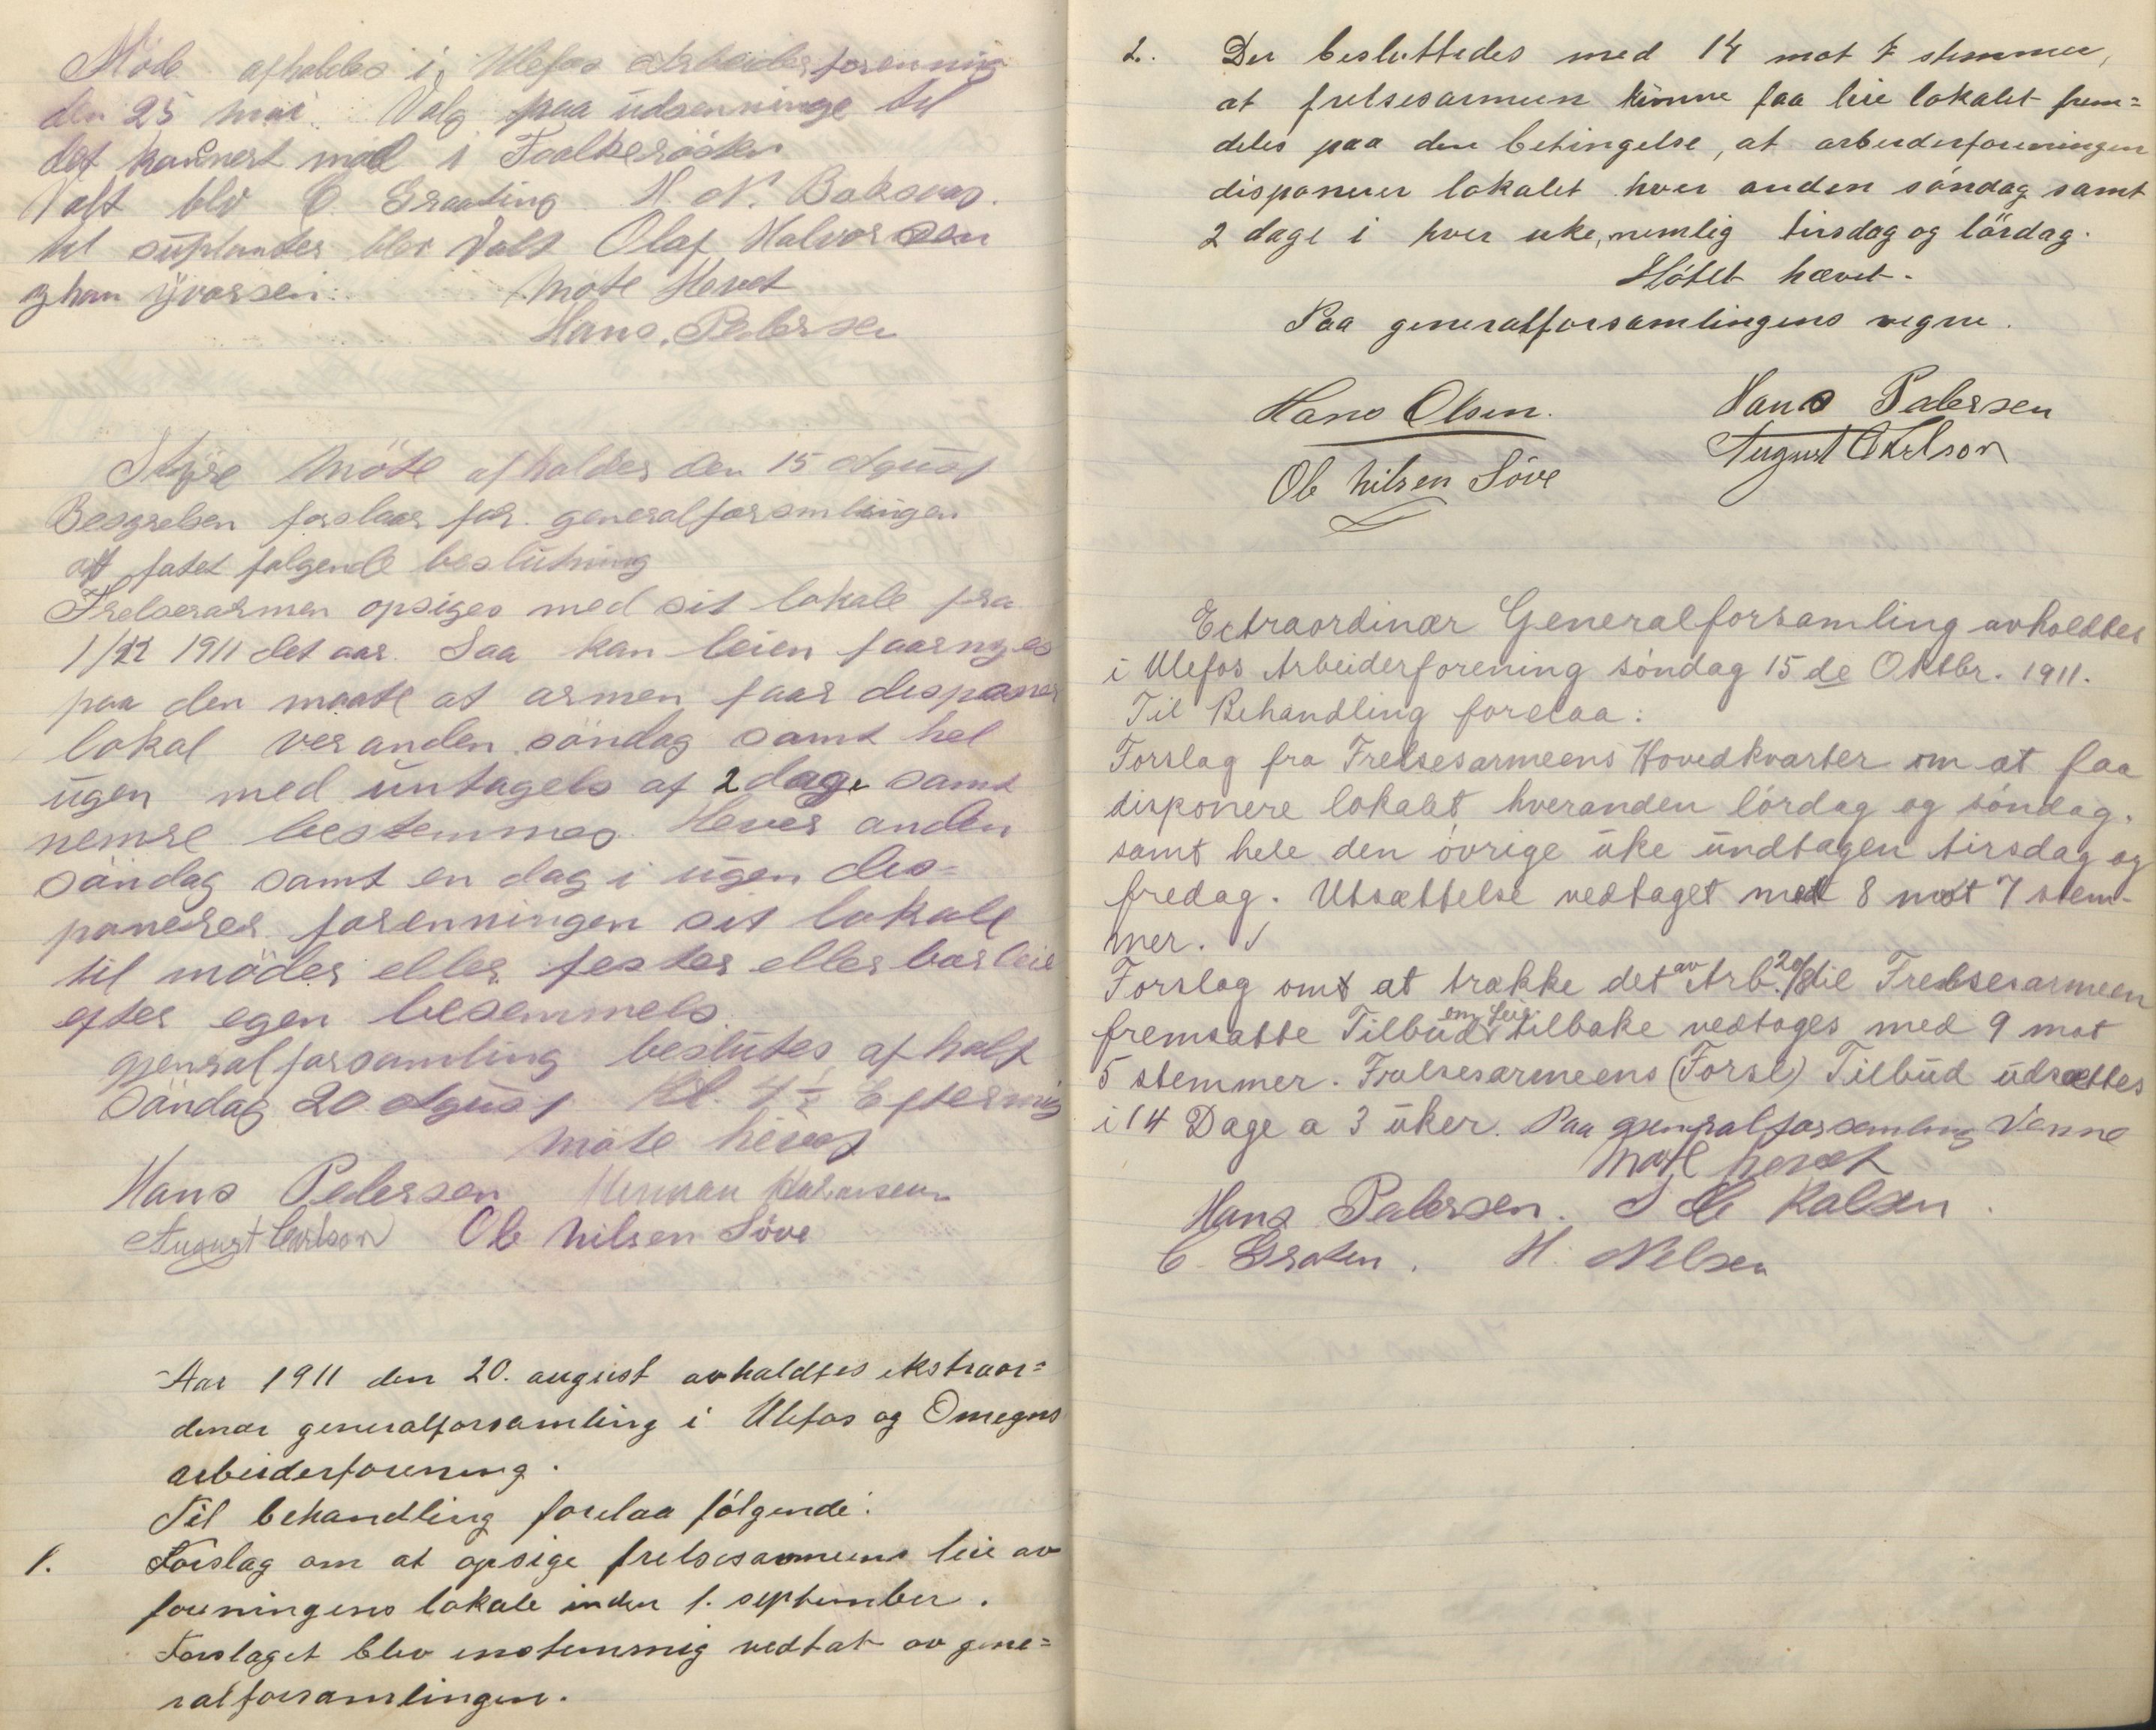 Möde afholdes i Ulefos Arbeiderforenning
den 25 mai. Valg paa udsenninge til
det mød i
Valt blv C Graating H. N.
til suplander blev Valt Olaf Halvorsen
og han Yvarsen. Möte Hevet
Hans. Pedersen
Styre Möte afholdes den 15 Agust
Besyrelsen forslaar for generalforsmlingen
att fatet følgende beslutning
Frelserarmen opsiges med sit lokale fra
1911 det aar. Saa kan leien faarnyes
paa den maate at armen faar disponer
lokal ver anden söndag samt hel
ugen med untagels af 2 dage samt
nemre bestemmes Hever anden
söndag samt en dag i ugen dis=
panerer forenningen sit lokale
til möder eller fester eller bortleie
efter egen besemmels
gjenralforsamling beslutes afhalt
Söndag 20 Agust Kl. 4½ Eftermig
möte hevet
Hans Pedersen Herman Halvorsen
August Carlson Ole Nilsen Söve
Aar 1911 den 20. august avholdtes ekstraor=
dinær generalforsamling i Ulefos og Omegns
arbeiderforening.
Til behandling forelaa følgende:
1. Forslag om at opsige frelsesarmeens leie av
foreningens lokale inden 1. september.
Forslaget blev enstemmig vedtat av gene=
ralforsamlingen.
2. Der besluttedes med 14 mot 7 stemmer,
at frelsesarmeen kunne faa leie lokalet frem=
deles paa den betingelse, at arbeiderforeningen
disponerer lokalet hver anden söndag samt
2 dage i hver uke, nemlig tirsdag og lördag.
Mötet hævet.
Paa generalforsamlingens vegne.
Hans Olsen. Hans Pedersen
Ole Nilsen Söve August Carlson
Extraordinær Generalforsamling avholdtes
i Ulefos Arbeiderforening söndag 15 de Oktbr. 1911.
Til Behandling forelaa:
Forslag fra Frelsesarmeens Hovedkvarter om at faa
disponere lokalet hveranden lördag og söndag,
samt hele den övrige uke undtagen tirsdag og
fredag. Utsættelse vedtaget med 8 mot 7 stem-
mer.
Forslag om at trække det av Arb. 20/8 til Frelsesarmeen
fremsatte Tilbud om Leie tilbake vedtoges med 9 mot
5 stemmer. Frelsesarmeens (Forsl) Tilbud udsættes
i 14 Dage a 3 uker. Paa gjenralforsamling Venne
Möte hevet
Hans Pedersen.
C Graten. H. Nelsen